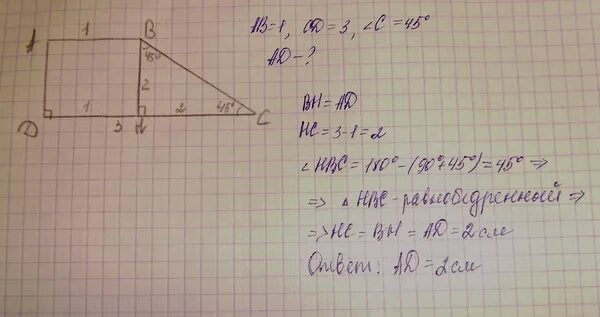 A 1 B
45°
2
1 2 45°
D 3 H C
AB=1, CD=3, ∠C=45°
AD-?
BH=AD
HC=3-1=2
∠HBC=180°-(90°+45°)=45° ⇒
⇒ △ HBC-равнобедренный ⇒
⇒ HC=BH=AD=2см
Ответ: AD=2см